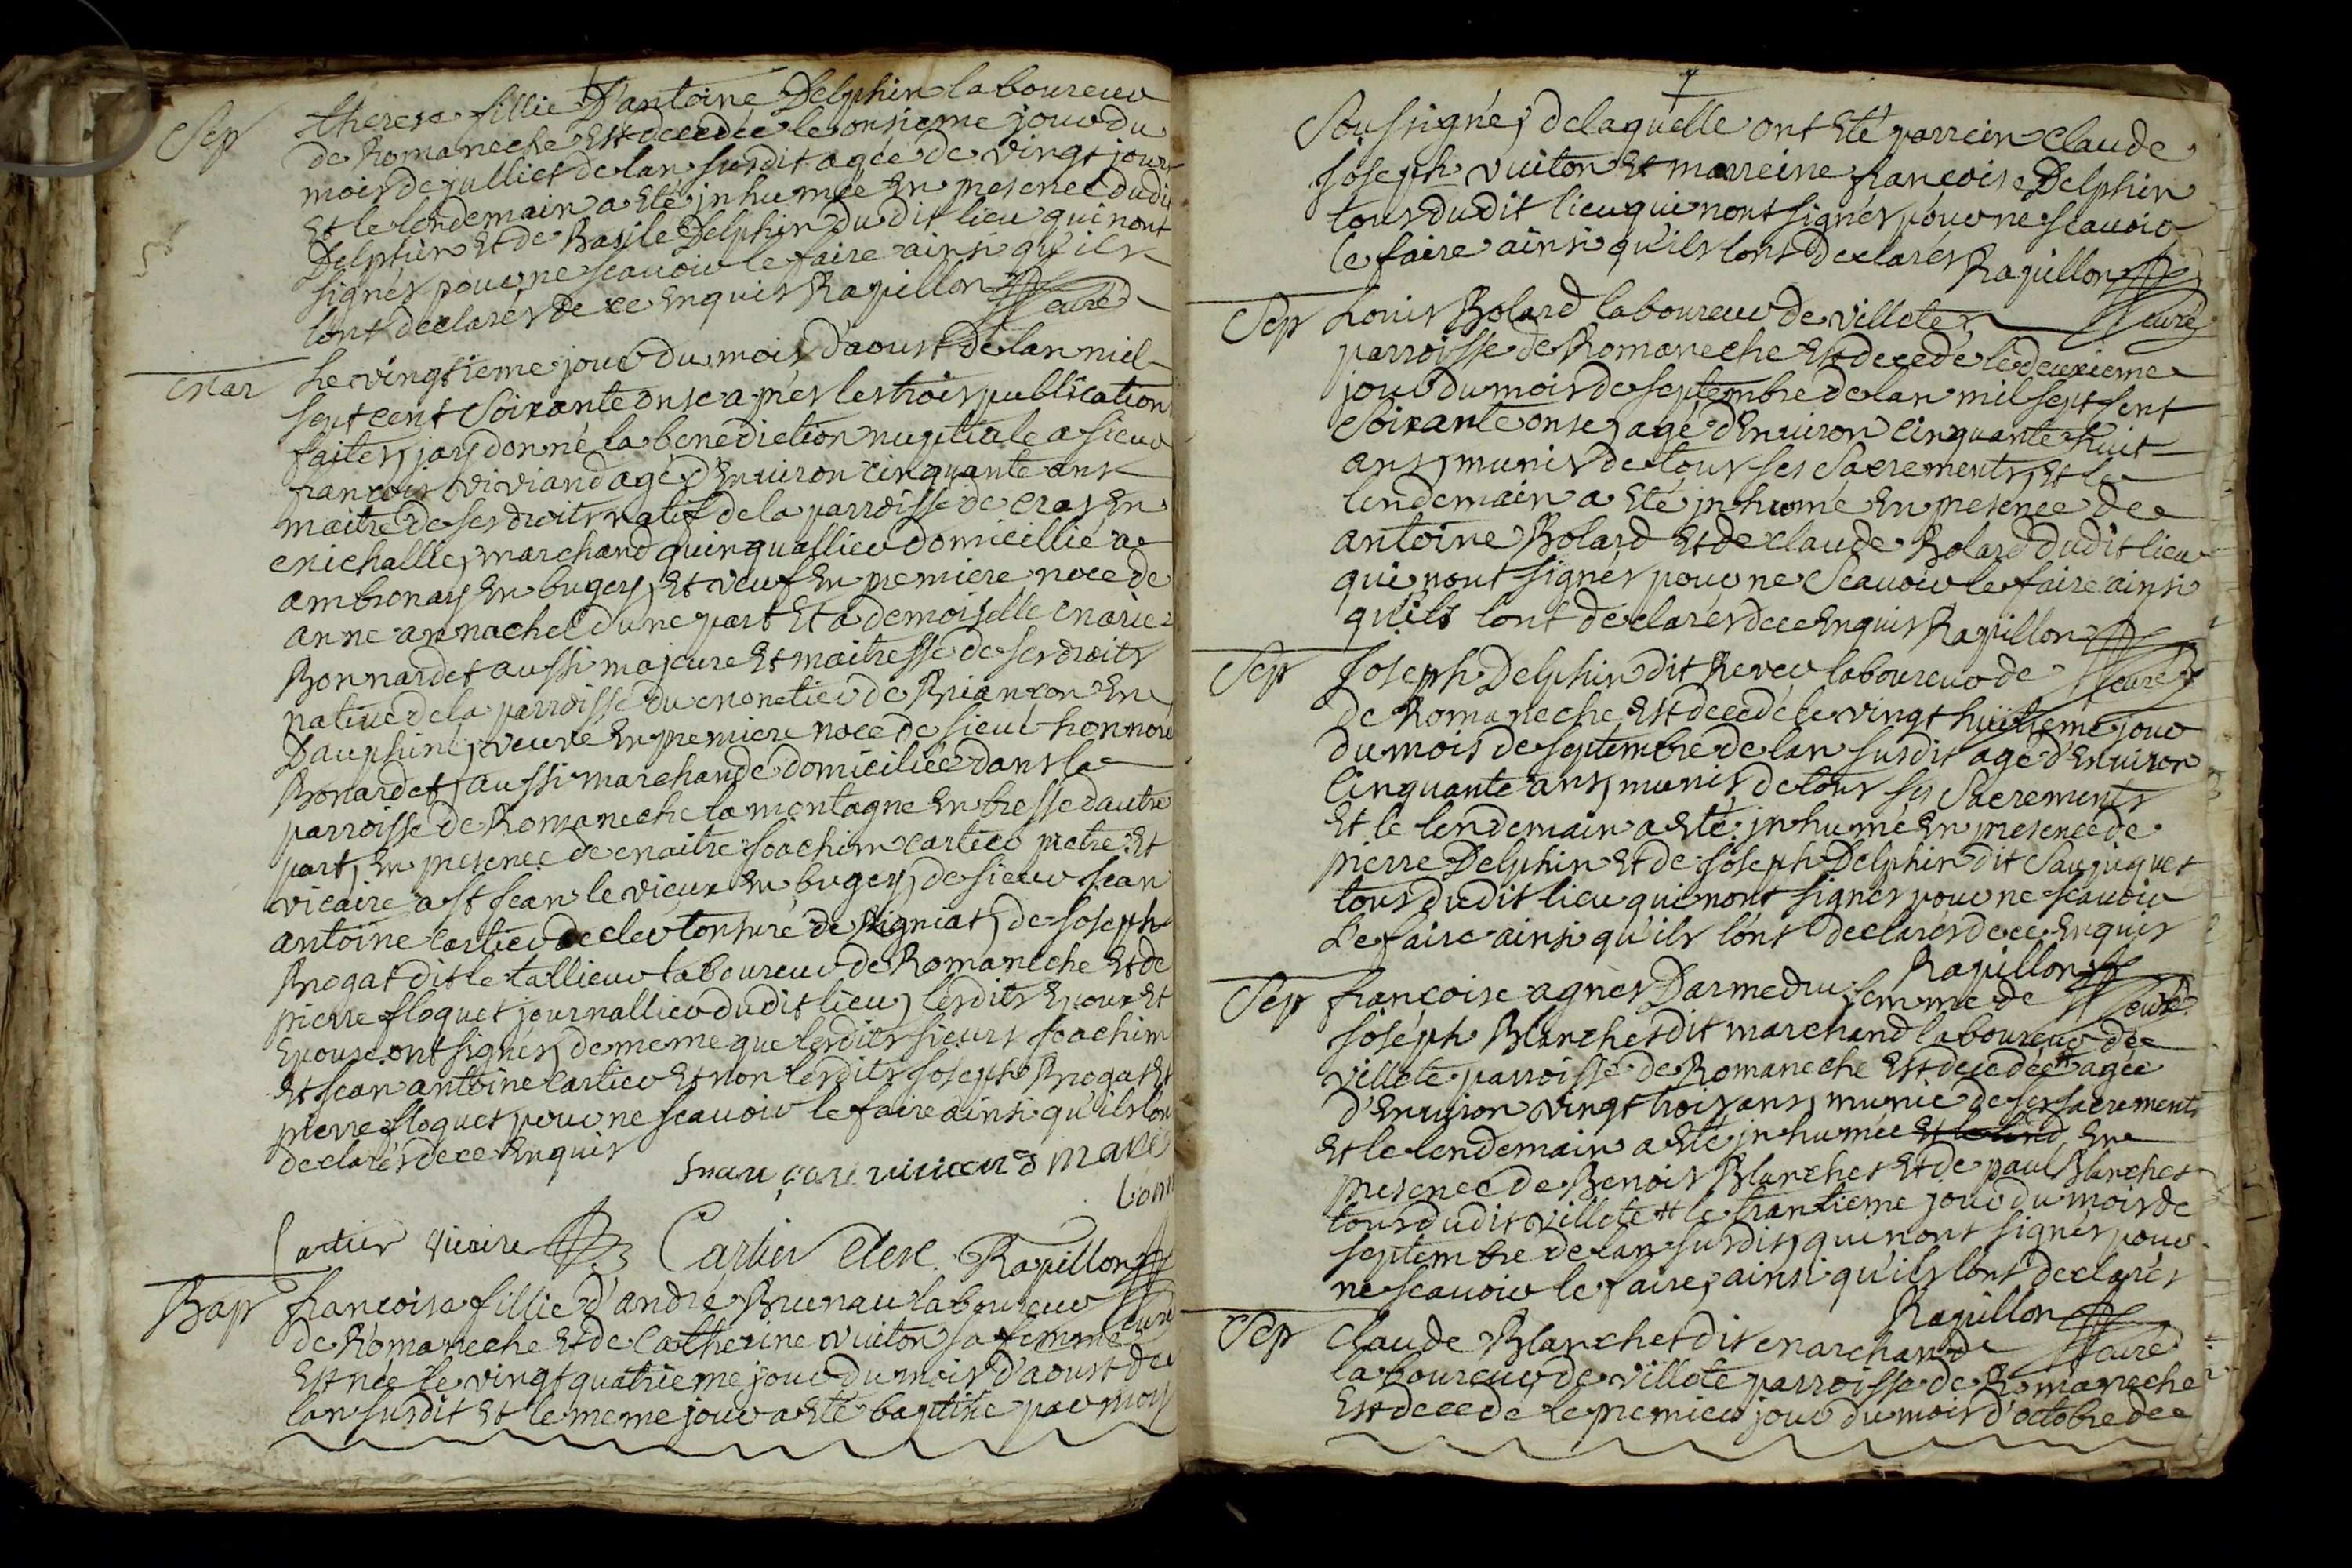 Sep therese fillie D'antoine Delphin laboureur
de Romaneche Est decedée le onsieme jour du
mois de julliet de lan susdit agée de vingt jours
Et le lendemain a Eté jnhumée En presence dudit
Delphin Et de Basile Delphin du dit lieu qui nont
signés pour ne scauoir le faire ainsi qu'ils
lont declarés de ce Enquis Rapillon
curé
Mar Le vingtieme jour du mois d'aoust de lan mil
sept cent Soixante onse apres les trois publications
faites, jay donné la benediction nuptiale a sieur
francois viviand agé d'Enuiron cinquante ans
maitre de ses droits natif de la parroisse de cras En
michallie, marchand quinquallieur domicillié a
ambronay En bugey, Et veuf En premiere noce de
anne annachel dune part Et a demoiselle marie
Bonnardet aussi majeure Et maitresse de ses droits
natiue de la parroisse du monetier de Briancon En
Dauphiné, veuve En premiere noce de sieur honnoré
Bonardet, aussi marchande domiciliée dans la
parroisse de Romaneche la montagne En bresse dautre
part, En presence de maitre Joachim cartier pretre Et
vicaire a St Jean le vieux En bugey, de sieur Jean
antoine cartier clerc tonsuré de Signiat, de Joseph
Brogat dit le tallieur laboureur de Romaneche Et de
pierre floquet journallier dudit lieu, lesdits Epoux Et
Epouse ont signés, de meme que lesdits sieurs Joachim
Et Jean antoine cartier Et non lesdits Joseph Brogat Et
pierre floquet pour ne scauoir le faire ainsi qu'ils lon
declarés de ce Enquis
marie
bonn
Cartier vicaire Cartier Clerc. Rapillon
curé
Bap francoise fillie d'andré Brunau laboureur
de Romaneche Et de Catherine vuiton sa femme
Est née le vingt quatrieme jour du mois d'aoust de
lan susdit Et le meme jour a Eté baptisé par moy
Soussigné, de laquelle ont Eté parrein claude
Joseph vuiton Et marreine francoise Delphin
tous dudit lieu qui nont signés pour ne scauoir
le faire ainsi qu'ils lont declarés Rapillon
curé
Sep Louis Bolard laboureur de villete
parroisse de Romaneche Est decedé le deuxieme
jour du mois de septembre de lan mil sept sent
Soixante onse, agé d'Enuiron cinquante huit
ans, munis de tous ses Sacrements, Et le
lendemain a Eté jnhumé En presence de
antoine Bolard Et de claude Bolard dudit lieu
qui nont signés pour ne Scauoir le faire ainsi
qu'ils lont declarés de ce Enquis Rapillon
curé
Sep Joseph Delphin dit Rever laboureur de
de Romaneche Est decedé le vingt huitieme jour
du mois de septembre de lan susdit agé d'Enuiron
Cinquante ans, munis de tous ses Sacrements
Et le lendemain a Eté jnhumé En presence de
pierre Delphin Et de Joseph Delphin dit
tous dudit lieu qui nont signés pour ne scauoir
Le faire ainsi qu'ils lont declarés de ce Enquis
Rapillon
curé
Sep francoise agnes Darmedru femme de
Joseph Blanchet dit marchand laboureur de
villete parroisse de Romaneche Est decedée # agée
d'Enuiron vingt trois ans, munie de ses sacrements
Et le lendemain a Eté jnhumée Et le lend En
presence de Benoit Blanchet Et de paul Blanchet
tous dudit villete # le trantieme jour du mois de
septembre de lan susdit, qui nont signés pour
ne scauoir le faire, ainsi qu'ils lont declarés
Rapillon
curé
Sep Claude Blanchet dit marchand
laboureur de villete parroisse de Romaneche
Est decedé le premier jour du mois d'octobre de